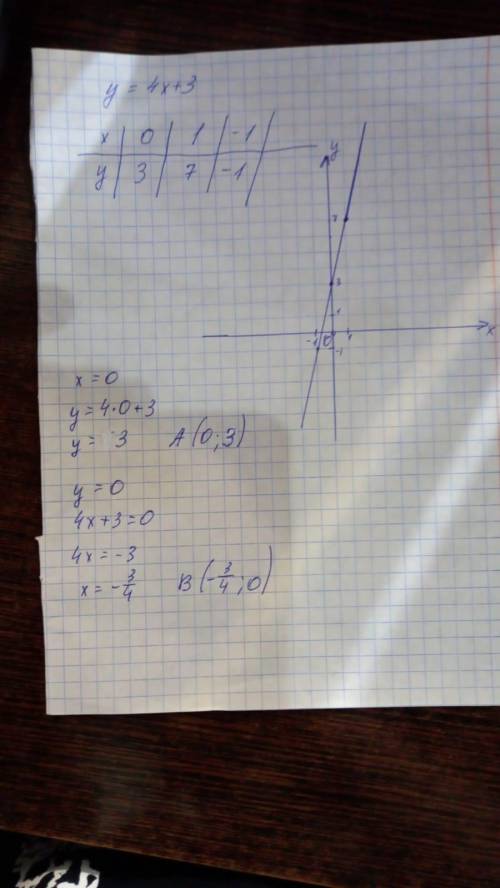 y = 4x+3
x | 0 | 1 | -1 |
y | 3 | 7 | -1 |
y
7
3
1
-1 0 1 x
-1
x = 0
y = 4·0+3
y = 3 A (0; 3)
y = 0
4x+3=0
4x = -3
x = -3/4 B (-3/4; 0)